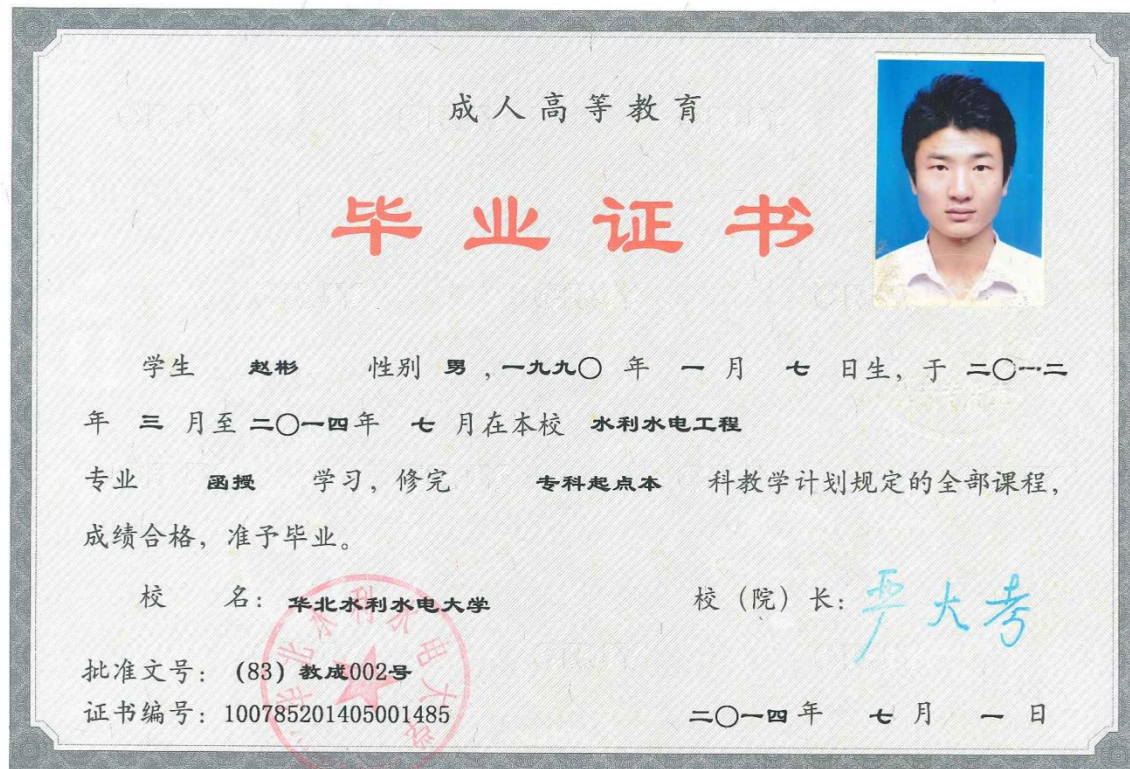 成人高等教育
毕业证书
学生 赵彬 性别 男，一九九〇 年 一 月 七 日生，于 二〇一二
年 三 月至 二〇一四年 七 月在本校 水利水电工程
专业 函授 学习，修完 专科起点本 科教学计划规定的全部课程，
成绩合格，准予毕业。
校 名：华北水利水电大学
校（院）长：严大考
批准文号：(83) 教成002号
证书编号：100785201405001485
二〇一四年 七 月 一 日
华北水利水电大学